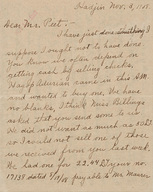 Tianjin Nov. 6, 1915.
Dear Mr. Peet:-
I have just done something I
suppose I ought not to have done.
You know we often depend in
getting cash by selling checks.
came in this A.M.
and wanted to buy one. We have
no blanks, I think Miss Billings
asked that you send some to us.
We did not want as much as
so I could not sell one of those
we received from you last week.
We had one for 23.44 your no.
17138 dated 3/17/15 payable to Mr. Maurer